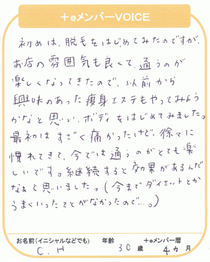 +eメンバーVOICE
初めは、脱毛をはじめてみたのですが、
お店の雰囲気も良くて、通うのが
楽しくなってきたので、以前から
興味のあった痩身エステもやってみよう
かなと思い、ボディをはじめてみました。
最初はすごく痛かったけど、徐々に
慣れてきて、今では通うのがとても楽
しいです。継続すると効果があるんだ
なぁて思いました。(今までダイエットとか
うまくいったことがなかったので…。)
お名前(イニシャルなどでも) 年齢 +eメンバー暦
C.H 30歳 4ヵ月